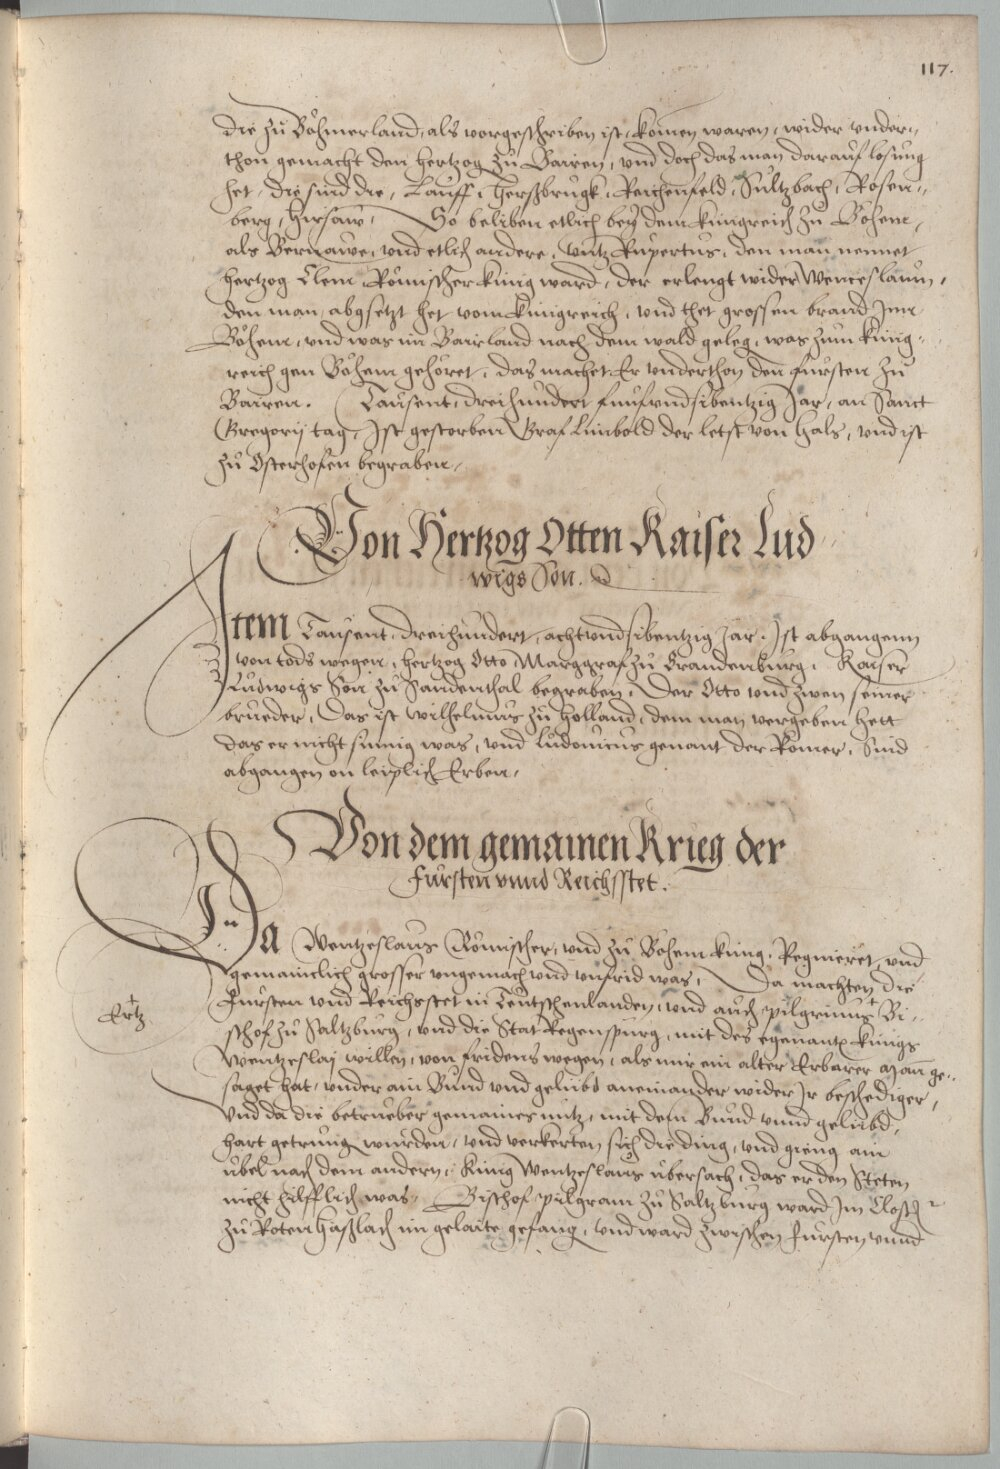 117.
die zů Böhmerland, als vorgeschriben ist, komen waren, wider vnder-
thon gemacht den hertzog zů Bairen, vnd doch das man darauf losung
het, die sind die, Lauff, Herßbrugk, Reichenfeld, Sultzbach, Rosen-
berg, Hirsaw, So beliben etlich bey dem kunigreich zů Böhem,
als Bernawe, vnd etlich andere, vntz Rupertus, den man nennet
hertzog Clem Römischer kunig ward, der erlengt wider Wenceslaum,
den man abgsetzt het vom kunigreich, vnd thet grossen brand Jnn
Böhem, vnd was im Bairland nach dem wald geleg, was zum kunig-
reich gen Böhem gehöret, das machet Er vnderthon den fursten zů
Bairen. Tausent, dreihundert funfundsibentzig Jar, an Sanct
Gregorij tag, Jst gestorben Graf Leubold der letst von Hals, vnd ist
zů Osterhofen begraben,
Von Hertzog Otten Kaiser Lud
wigs Son.
Jtem Tausent, dreihundert, achtundsibentzig Jar, Jst abgangenn
von tods wegen, hertzog Otto Marggraf zů Brandenburg, Kaiser
Ludwigs Son zů Sandenthal begraben, Der Otto vnd zwen seiner
brueder, Das ist Wilhelmus zů Holland, dem man vergeben hett
das er nicht sinnig was, vnd Ludouicus genant der Römer, Sind
abgangen on leiplich Erben,
Von dem gemainen Krieg der
Fursten vnnd Reichsstet.
Da Wentzeslaus Römischer, vnd zů Böhem kung, Regnieret, vnd
gemainclich grosser vngemach vnd vnfrid was, Da machten die
Fursten vnd Reichsstet in Teutschenlanden, vnd auch pilgrimus + Bi-
Ertz +
schof zů Saltzburg, vnd die Stat Regenspurg, mit des egenanten kungs
Wentzeslaj willen, von fridens wegen, als mir ein alter Erbarer Man ge-
saget hat, vnder ain Bund vnd gelubd aneinander wider Jr beschediger,
Vnd da die betrueber gemaines nutz, mit dem Bund vnnd gelubd,
hart getrung wurden, vnd verkerten sich die ding, vnd gieng ain
ubel nach dem andern, Kunig Wentzeslaus ubersach, das er den Steten
nicht hilfflich was, Bischof pilgram zů Saltzburg ward Jm Closter
zů Rotenhaßlach im gelaite gefang, vnd ward zwischen Fursten vnnd